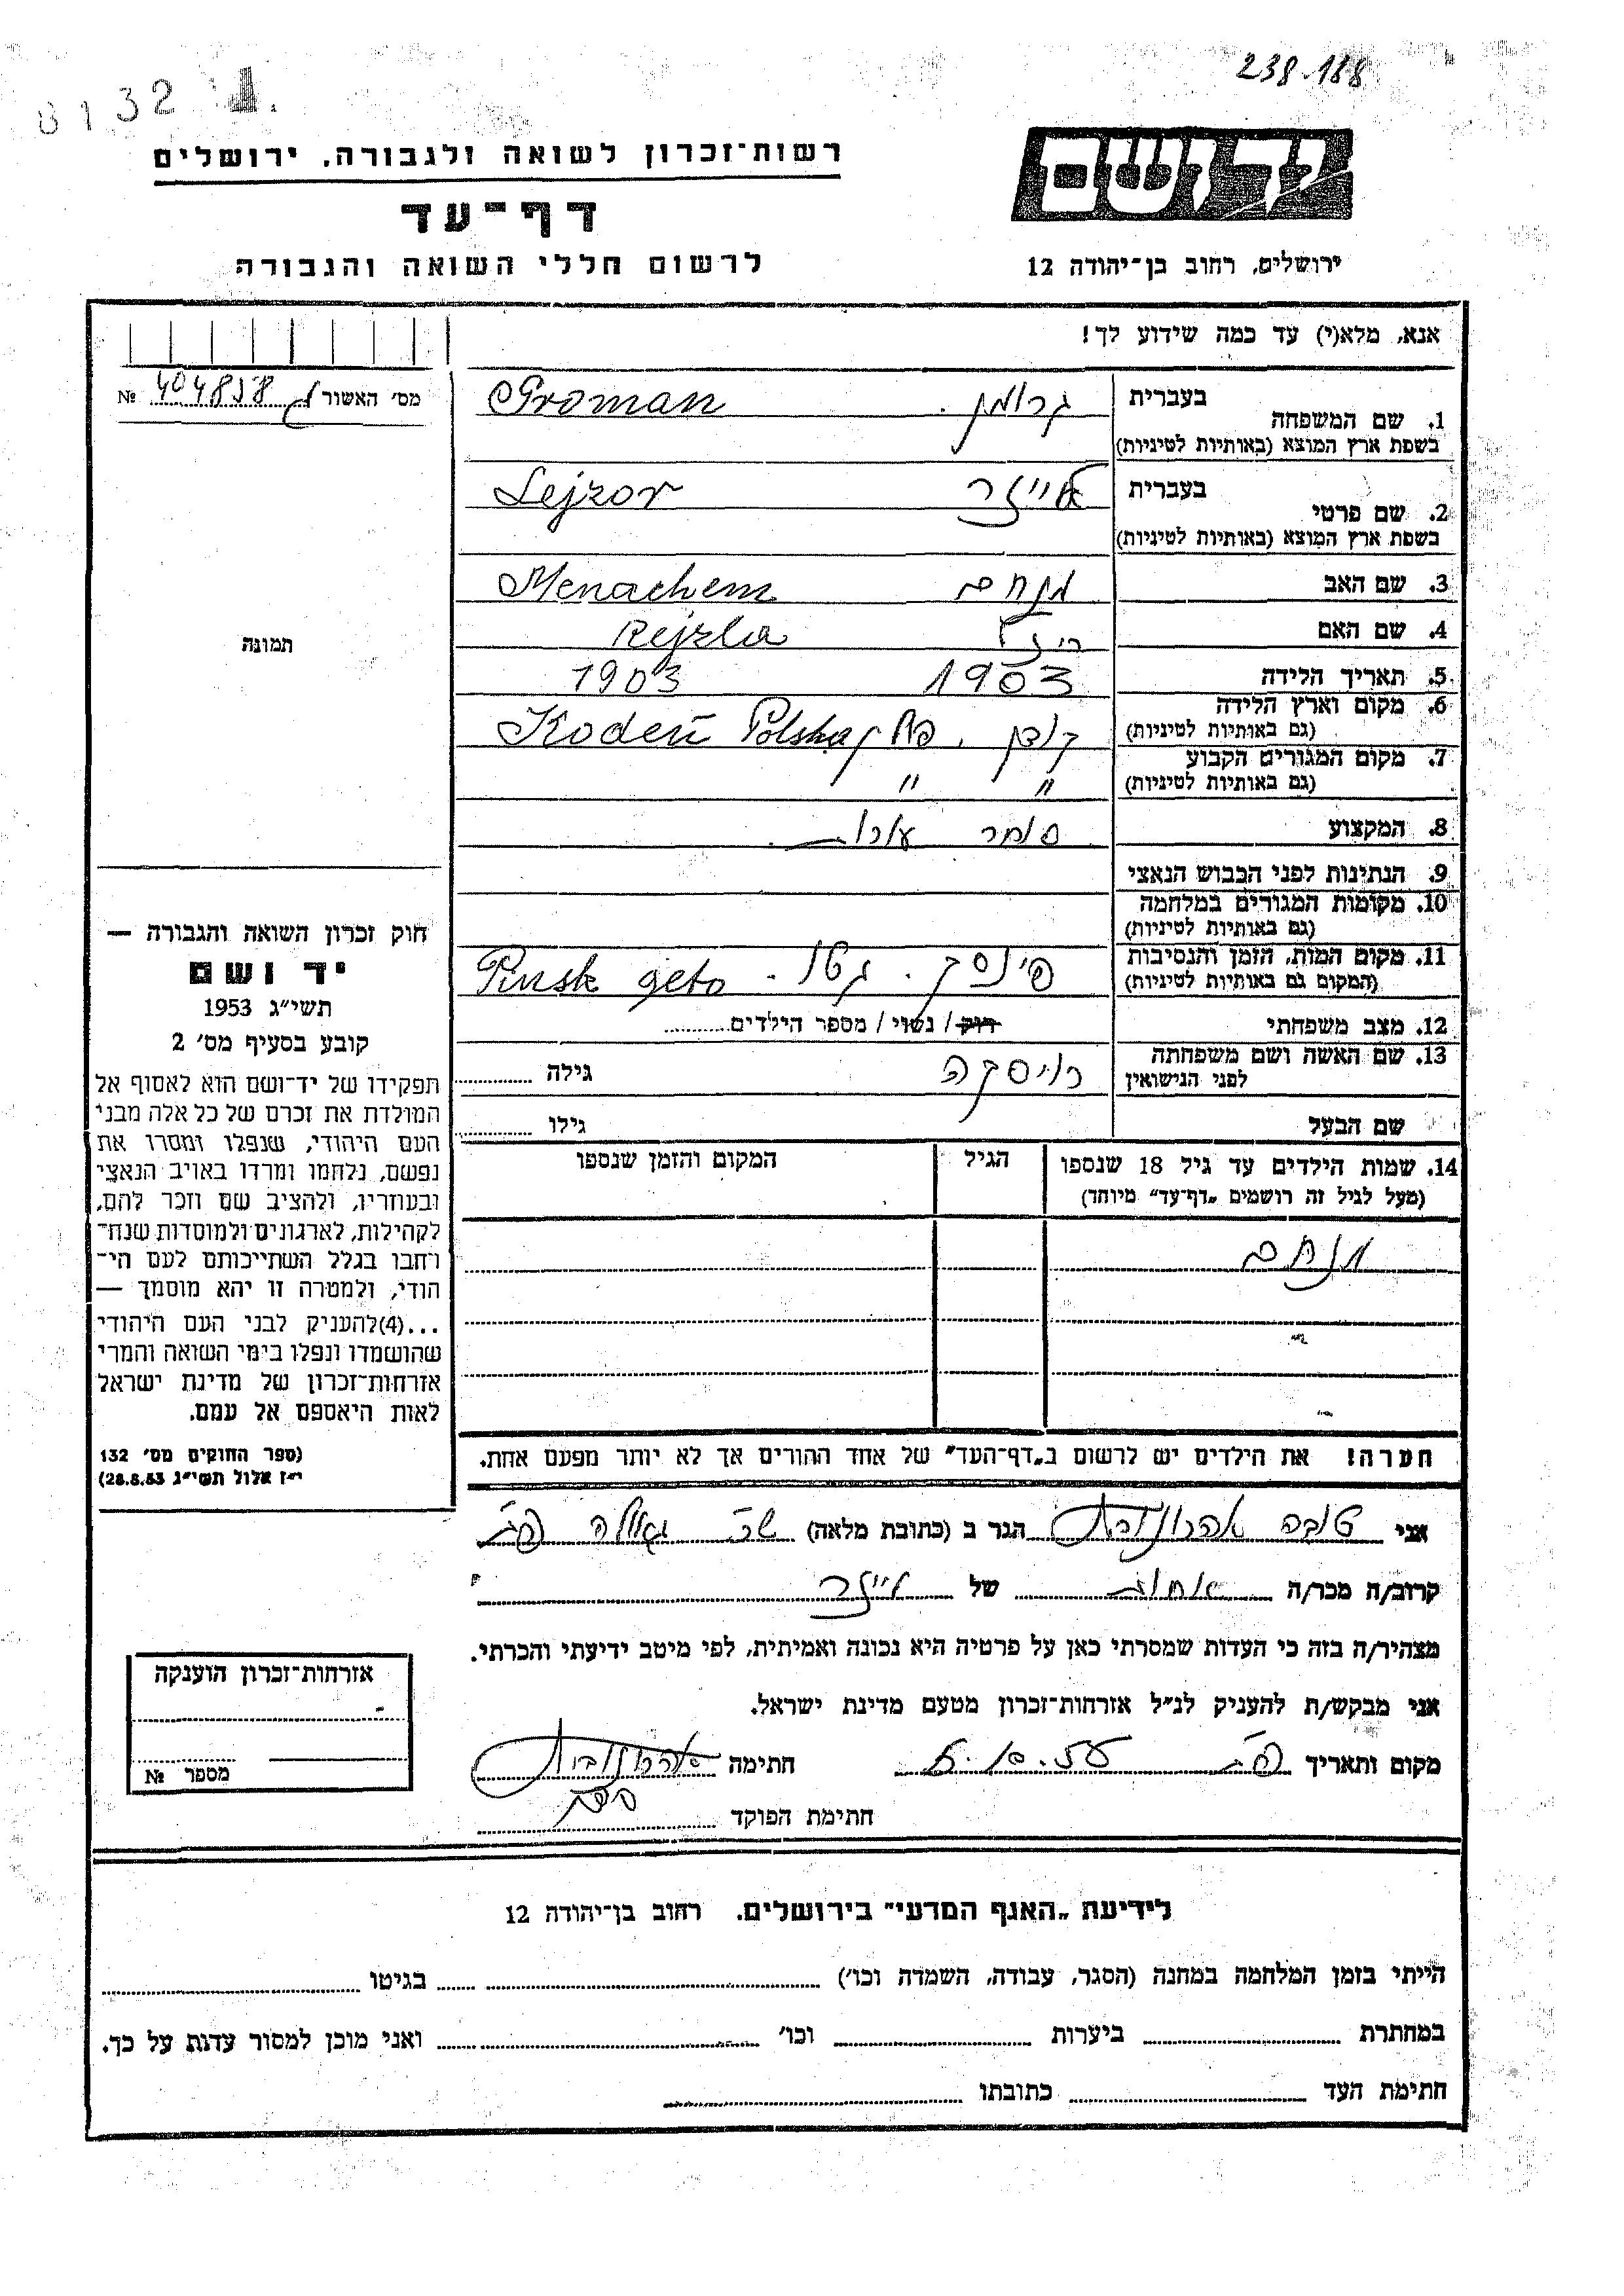 238.188
0132
רשות־זכרון לשואה ולגבורה, ירושלים
יד ושם
דף־עד
לרשום חללי השואה והגבורה
ירושלים, רחוב בן־יהודה 12
אנא, מלא(י) עד כמה שידוע לך!
מס׳ האשור 404858 №
1. שם המשפחה
בעברית גרומן. Groman
בשפת ארץ המוצא (באותיות לטיניות)
2. שם פרטי
בעברית לייזר Lejzor
בשפת ארץ המוצא (באותיות לטיניות)
3. שם האב מנחם Menachem
4. שם האם Rejzla
5. תאריך הלידה 1903 1903
6. מקום וארץ הלידה קודן. Kodeń Polska
(גם באותיות לטיניות)
7. מקום המגורים הקבוע " " "
(גם באותיות לטיניות)
8. המקצוע סוחר עורות.
9. הנתינות לפני הכבוש הנאצי
10. מקומות המגורים במלחמה
(גם באותיות לטיניות)
11. מקום המות, הזמן והנסיבות פינסק. גטו. Pinsk geto
(המקום גם באותיות לטיניות)
12. מצב משפחתי רוק / נשוי / מספר הילדים
13. שם האשה ושם משפחתה
לפני הנישואין גילה
שם הבעל גילו
14. שמות הילדים עד גיל 18 שנספו הגיל המקום והזמן שנספו
(מעל לגיל זה רושמים „דף־עד״ מיוחד)
מנחם
הערה! את הילדים יש לרשום ב„דף־העד״ של אחד ההורים אך לא יותר מפעם אחת.
תמונה
חוק זכרון השואה והגבורה —
יד ושם
תשי״ג 1953
קובע בסעיף מס׳ 2
תפקידו של יד־ושם הוא לאסוף אל
המולדת את זכרם של כל אלה מבני
העם היהודי, שנפלו ומסרו את
נפשם, נלחמו ומרדו באויב הנאצי
ובעוזריו, ולהציב שם וזכר להם,
לקהילות, לארגונים ולמוסדות שנח־
רחבו בגלל השתייכותם לעם הי־
הודי, ולמטרה זו יהא מוסמך —
...(4)להעניק לבני העם היהודי
שהושמדו ונפלו בימי השואה והמרי
אזרחות־זכרון של מדינת ישראל
לאות היאספם אל עמם.
(ספר החוקים מס׳ 132
י״ז אלול תשי״ג 28.8.53)
אני טובה אהרונוביץ הגר ב (כתובת מלאה) שכ׳ גאולה
קרוב/ה מכר/ה אחות של לייזר
מצהיר/ה בזה כי העדות שמסרתי כאן על פרטיה היא נכונה ואמיתית, לפי מיטב ידיעתי והכרתי.
אני מבקש/ת להעניק לנ״ל אזרחות־זכרון מטעם מדינת ישראל.
מקום ותאריך חתימה אהרונוביץ
חתימת הפוקד
אזרחות־זכרון הוענקה
מספר №
לידיעת „האגף המדעי״ בירושלים. רחוב בן־יהודה 12
הייתי בזמן המלחמה במחנה (הסגר, עבודה, השמדה וכו׳) בגיטו
במחתרת ביערות וכו׳ ואני מוכן למסור עדות על כך.
חתימת העד כתובתו